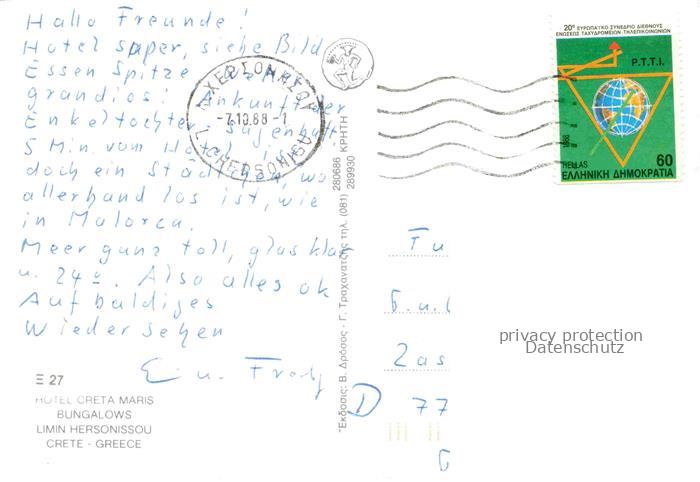 Hallo Freunde!
Hotel super, siehe Bild
Essen Spitze
grandios! Ankunft der
Enkeltochter sagenhaft.
5 Min. vom Hotel
doch ein Städtchen, wo
allerhand los ist, wie
in Malorca.
Meer ganz toll, glasklar
u. 24º. Also alles ok
Auf baldiges
Wiedersehen
E. u. Fredy
Ξ 27
HOTEL CRETA MARIS
BUNGALOWS
LIMIN HERSONISSOU
CRETE - GREECE
Λ. ΧΕΡΣΟΝΗΣΟΥ
-7.10.88-1
L. CHERSONISOU
Έκδοσις: Β. Δρόσος - Γ. Τραχανατζής τηλ. (081) 280686 289930 ΚΡΗΤΗ
20º ΕΥΡΩΠΑΪΚΟ ΣΥΝΕΔΡΙΟ ΔΙΕΘΝΟΥΣ
ΕΝΩΣΕΩΣ ΤΑΧΥΔΡΟΜΕΙΩΝ-ΤΗΛΕΠΙΚΟΙΝΩΝΙΩΝ
P.T.T.I.
1988
HELLAS 60
ΕΛΛΗΝΙΚΗ ΔΗΜΟΚΡΑΤΙΑ
D 77
privacy protection
Datenschutz